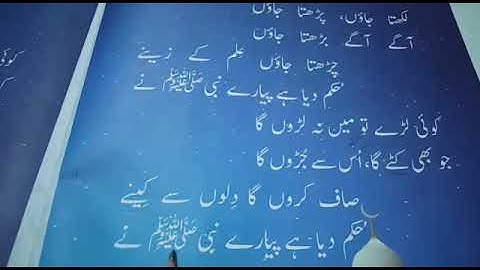 لکھتا جاؤں، پڑھتا جاؤں
آگے آگے بڑھتا جاؤں
چڑھتا جاؤں عِلم کے زینے
حُکم دیا ہے پیارے نبی ﷺ نے
کوئی لڑے تو مین نہ لڑوں گا
جو بھی کٹے گا، اُس سے جُڑوں گا
صاف کروں گا دِلوں سے کِینے
حُکم دیا ہے پیارے نبی ﷺ نے